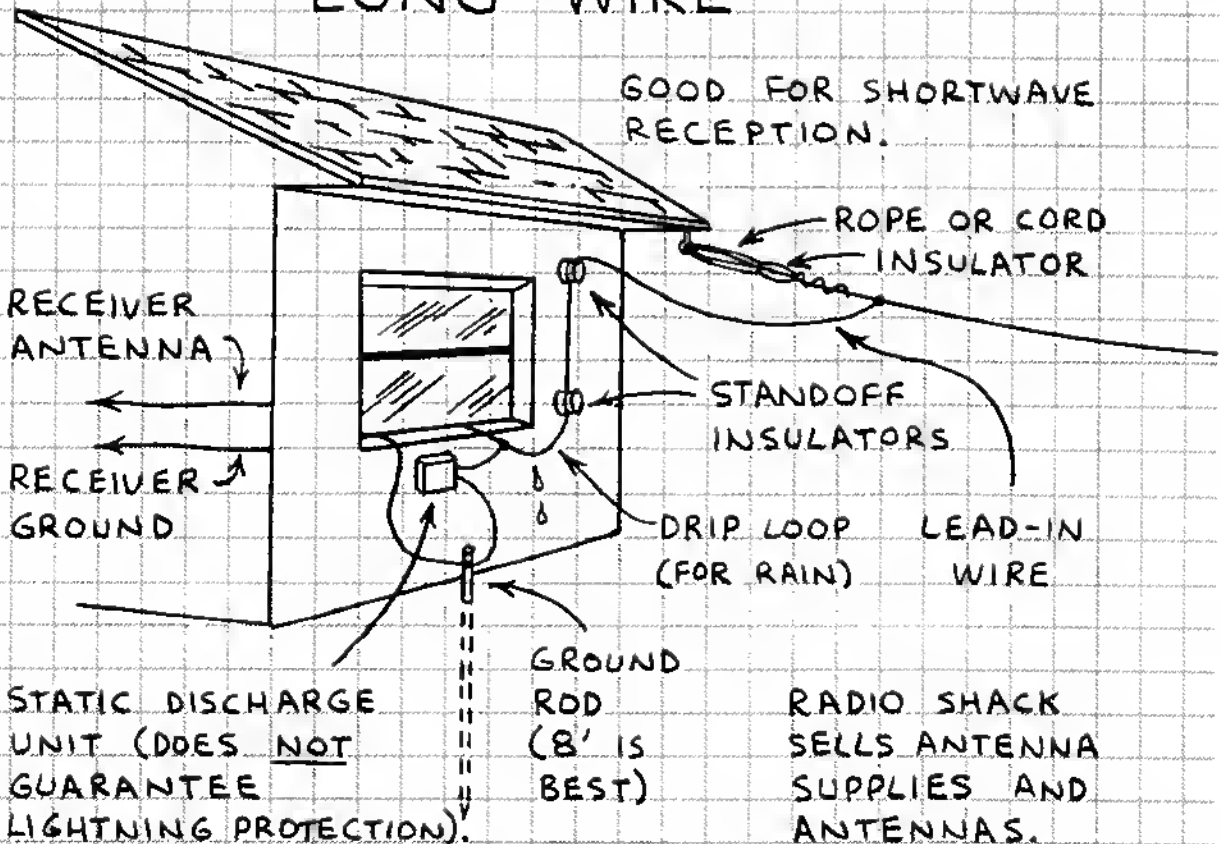 LONG WIRE
GOOD FOR SHORTWAVE
RECEPTION.
ROPE OR CORD
INSULATOR
RECEIVER
ANTENNA
STANDOFF
INSULATORS
RECEIVER
GROUND
DRIP LOOP
(FOR RAIN)
LEAD-IN
WIRE
STATIC DISCHARGE
UNIT (DOES NOT
GUARANTEE
LIGHTNING PROTECTION).
GROUND
ROD
(8' IS
BEST)
RADIO SHACK
SELLS ANTENNA
SUPPLIES AND
ANTENNAS.